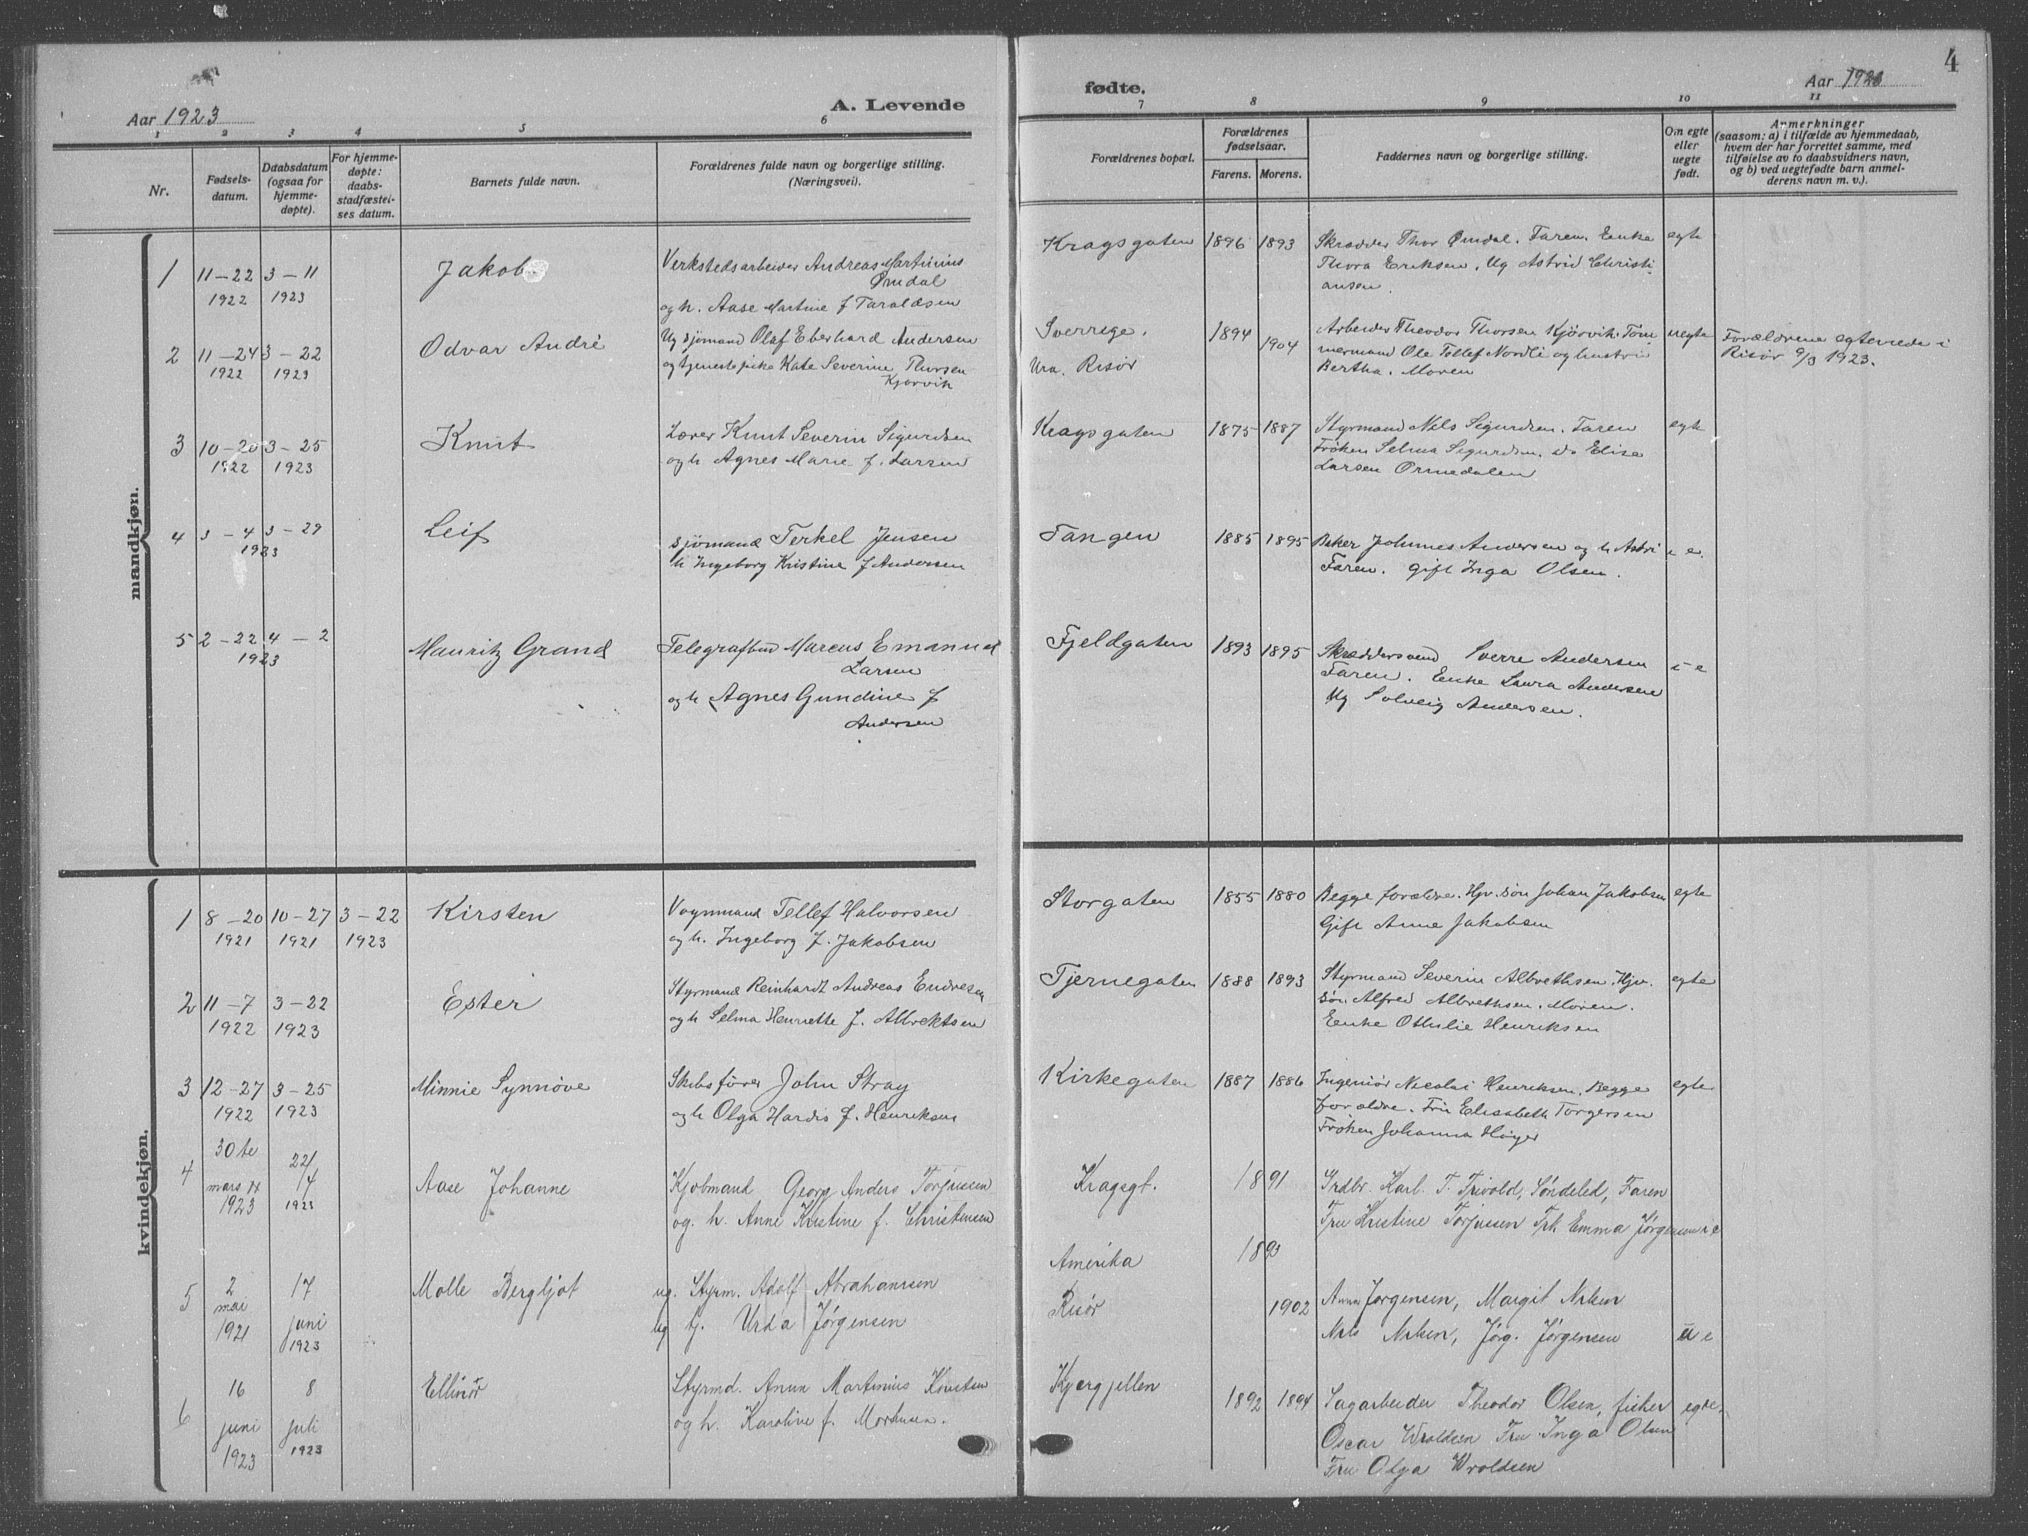 4
Aar 1923
A. Levende
fødte.
Aar 1923
1 2 3 4 5 6 7 8 9 10 11
Nr.
Fødsels-
datum.
Daabsdatum
(ogsaa for
hjemme-
døpte).
For hjemme-
døpte:
daabs-
stadfæstel-
ses datum.
Barnets fulde navn.
Forældrenes fulde navn og borgerlige stilling.
(Næringsvei).
Forældrenes bopæl.
Forældrenes
fødselsaar.
Farens. Morens.
Faddernes navn og borgerlige stilling.
Om egte
eller
uegte
født.
Anmerkninger
(saasom: a) i tilfælde av hjemmedaab,
hvem der har forrettet samme, med
tilføielse av to daabsvidners navn,
og b) ved uegtefødte barn anmel-
derens navn m. v.).
mandkjøn.
1 11-22 1922 3-11 1923 Jakob
Verkstedsarbeider Andreas Martinius
Ømdal
og h. Aase Martine f Taraldsen
Kragsgaten 1896 1893
Skrædder Thor Ømdal. Faren. Enke
Thora Eriksen. Ug Astrid Christi-
ansen.
egte
2 11-24 1922 3-22 1923 Odvar André
Ug sjømand Olaf Eberhard Andersen
og tjenestepike Kate Severine Thorsen
Kjørvik
Sverrige. 1894
Ura. Risør 1904
Arbeider Theodor Thorsen Kjørvik. Tøm
mermand Ole Tollef Nordli og hustru
Bertha. Moren
uegte
Forældrene egteviede i
Risør 9/3 1923.
3 10-20 1922 3-25 1923 Knut
Lærer Knut Severin Sigurdsen
og h Agnes Marie f. Larsen
Kragsgaten 1875 1887
Styrmand Nils Sigurdsen. Faren
Frøken Selma Sigurdsen. do Elise
Larsen Ormedalen
egte
4 3-4 3-29 1923 Leif
Sjømand Terkel Jensen
h Ingeborg Kristine f Andersen
Tangen 1885 1895
Baker Johannes Andersen og h Astri
Faren. Gift Inga Olsen.
i e.
5 2-22 4-2 1923 Mauritz Grand
Telegrafbud Marcus Emanuel
Larsen
og h Agnes Gundine f
Andersen
Fjeldgaten 1893 1895
Skræddersvend Sverre Andersen
Faren. Enke Laura Andersen
Ug Solveig Andersen.
i e
kvindekjøn.
1 8-20 1921 10-27 1921 3-22 1923 Kirsten
Vognmand Tellef Halvorsen
og h. Ingeborg f. Jakobsen
Storgaten 1855 1880
Begge forældre. Hjv. søn Johan Jakobsen
Gift Anne Jakobsen
egte
2 11-7 1922 3-22 1923 Ester
Styrmand Reinhardt Andreas Endresen
og h Selma Henriette f. Albrektsen
Tjernegaten 1888 1893
Styrmand Severin Albrethsen. Hjv.
søn. Alfred Albrethsen. Moren.
Enke Othilie Henriksen
egte
3 12-27 1922 3-25 1923 Minnie Synnøve
Skibsfører John Stray
og h Olga Hardis f. Henriksen
Kirkegaten 1887 1886
Ingeniør Nicolai Henriksen. Begge
forældre. Fru Elisabeth Torgersen
Frøken Johanna Høyer
egte
4 30te mars 1923 22/4 1923 Aase Johanne
Kjøbmand Georg Anders Torjussen
og. h. Anne Kristine f. Christensen
Kragsgt. 1891
Grdbr. Karl T. Trivold, Søndeled, Faren
Fru Kristine Torjussen Frk Emma Jørgensen i e
5 2 mai 1921 17 juni 1923 Molle Bergljot
ug. Styrm. Adolf Abrahamsen
ug tj. Urda Jørgensen
Amerika 1893
Risør 1902
Anna Jørgensen, Margit Nilsen
Nils Nilsen, Jørg. Jørgensen
u e
6 16 juni 1923 8 juli 1923 Ellinor
Styrmd. Anun Martinius Knutsen
og h. Karoline f. Mortensen.
Kjergjellen 1892 1894
Sagarbeider Theodor Olsen, fisker
Oscar Wroldsen Fru Inga Olsen
Fru Olga Wroldsen
egte.